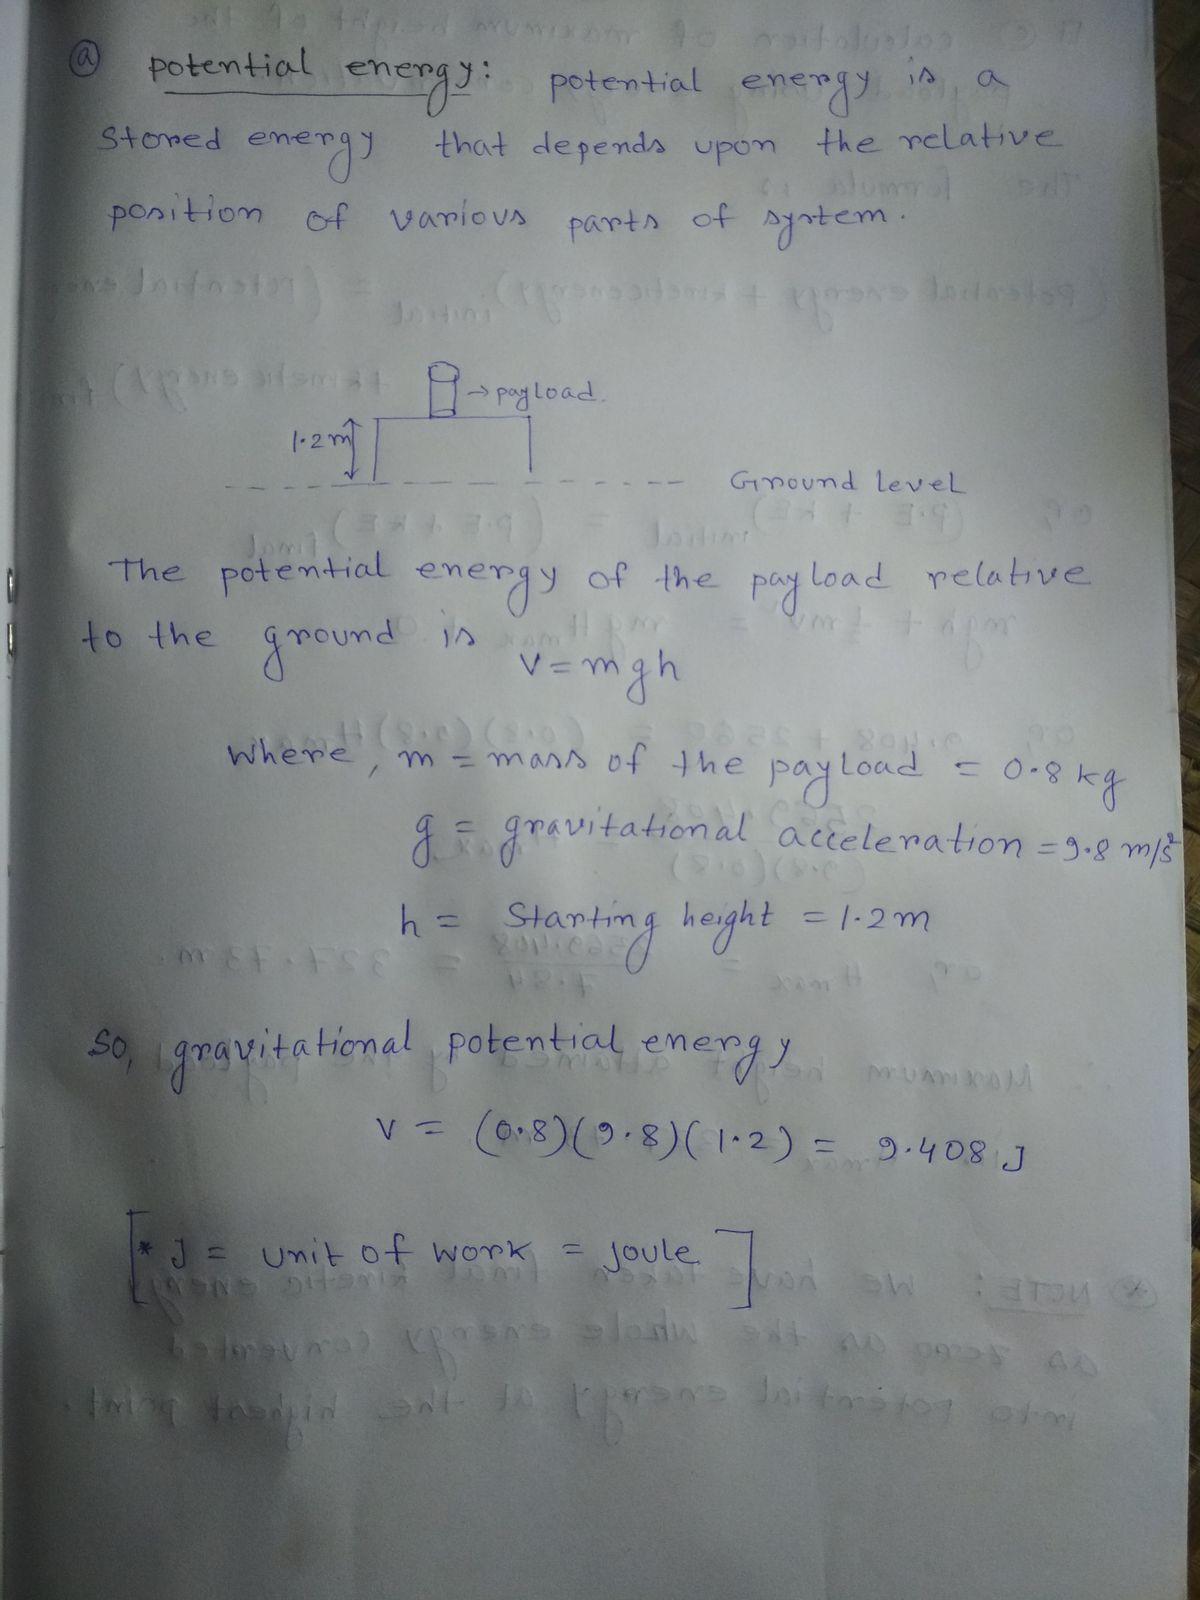 (a) potential energy: potential energy is a
stored energy that depends upon the relative
position of various parts of system.
→ payload.
1.2m
Ground level
The potential energy of the payload relative
to the ground is
V = mgh
Where, m = mass of the payload = 0.8 kg
g = gravitational acceleration = 9.8 m/s²
h = Starting height = 1.2m
So, gravitational potential energy
V = (0.8)(9.8)(1.2) = 9.408 J
[* J = unit of work = joule]